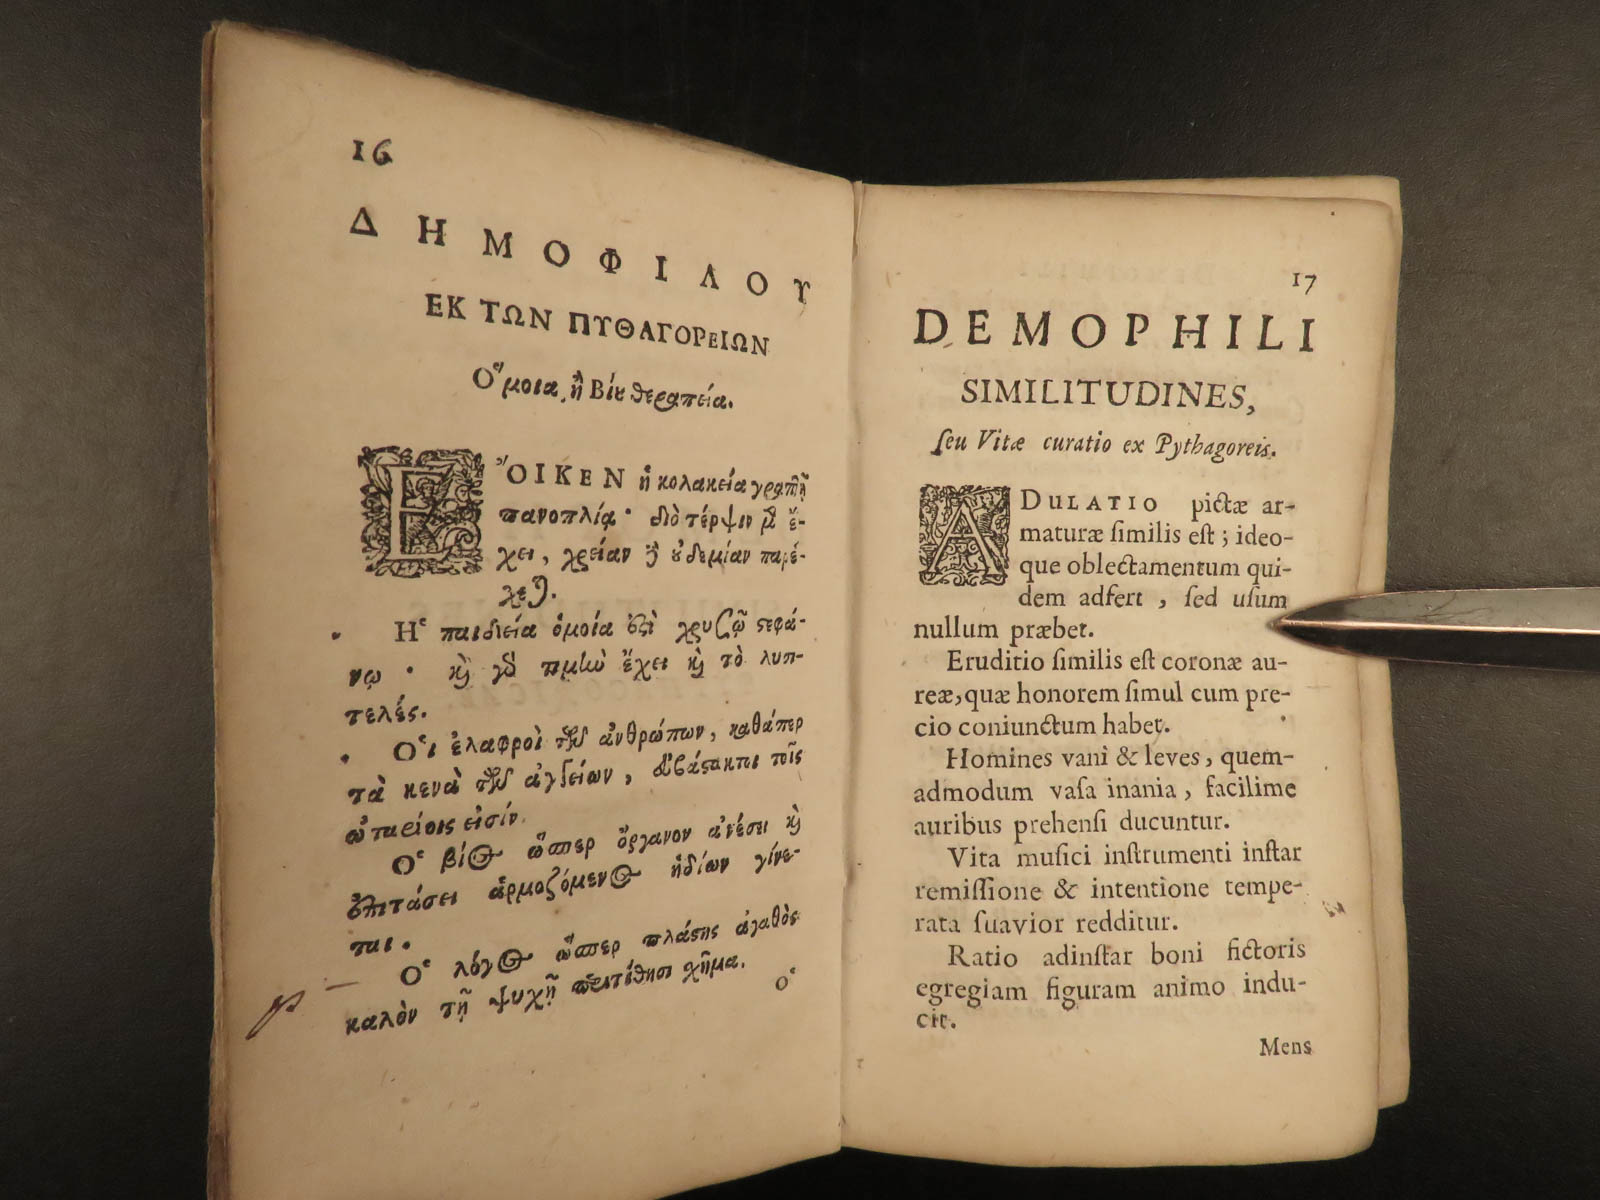 16
ΔΗΜΟΦΙΛΟΥ
ΕΚ ΤΩΝ ΠΥΘΑΓΟΡΕΙΩΝ
Ὅμοια, ἢ Βίου θεραπεία.
ἜΟΙΚΕΝ ἡ κολακεία γραπτῇ
πανοπλίᾳ· διὸ τέρψιν μὲν ἔ-
χει, χρείαν δὲ οὐδεμίαν παρέ-
χεται.
Ἡ παιδεία ὁμοία ἐστὶ χρυσῷ στεφά-
νῳ · καὶ γὰρ τιμὴν ἔχει καὶ τὸ λυπ-
τελές.
Οἱ ἐλαφροὶ τῶν ἀνθρώπων, καθάπερ
τὰ κενὰ τῶν ἀγγείων, εὐβάστακτοι τοῖς
ὠταρίοις εἰσίν.
Ὁ βίος ὥσπερ ὄργανον ἀνέσει καὶ
ἐπιτάσει ἁρμοζόμενος ἡδίων γίνε-
ται.
Ὁ λόγος ὥσπερ πλάστης ἀγαθὸς
καλὸν τῇ ψυχῇ περιτίθησι χῆμα.
ὁ
17
DEMOPHILI
SIMILITUDINES,
ſeu Vitæ curatio ex Pythagoreis.
ADULATIO pictæ ar-
maturæ ſimilis eſt ; ideo-
que oblectamentum qui-
dem adfert , ſed uſum
nullum præbet.
Eruditio ſimilis eſt coronæ au-
reæ, quæ honorem ſimul cum pre-
cio coniunctum habet.
Homines vani & leves , quem-
admodum vaſa inania , facilime
auribus prehenſi ducuntur.
Vita muſici inſtrumenti inſtar
remiſſione & intentione tempe-
rata ſuavior redditur.
Ratio adinſtar boni fictoris
egregiam figuram animo indu-
cit.
Mens